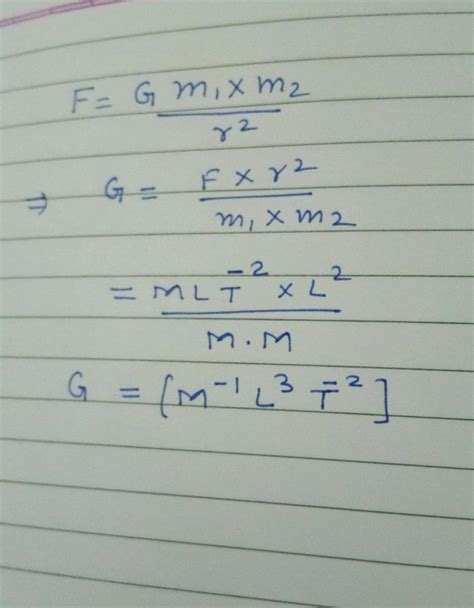 F = G m₁ × m₂
r²
⇒ G = F × r²
m₁ × m₂
= M L T⁻² × L²
M . M
G = [M⁻¹ L³ T⁻²]